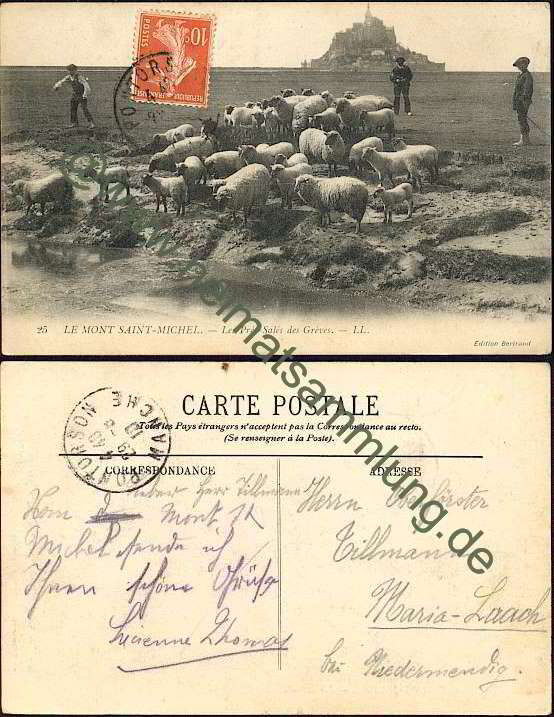 10c POSTES
REPUBLIQUE FRANÇAISE
25 LE MONT SAINT-MICHEL. — Les Prés Salés des Grèves. — LL.
Edition Bertrand
© www.heimatsammlung.de
CARTE POSTALE
Tous les Pays étrangers n'acceptent pas la Correspondance au recto.
(Se renseigner à la Poste).
PONTORSON MANCHE
CORRESPONDANCE
ADRESSE
Lieber Herr Tillmann
Vom Mont St
Michel sende ich
Ihnen schöne Grüße
Lucienne Thomas
Herrn Oberförster
Tillmann
Maria-Laach
bei Niedermendig.